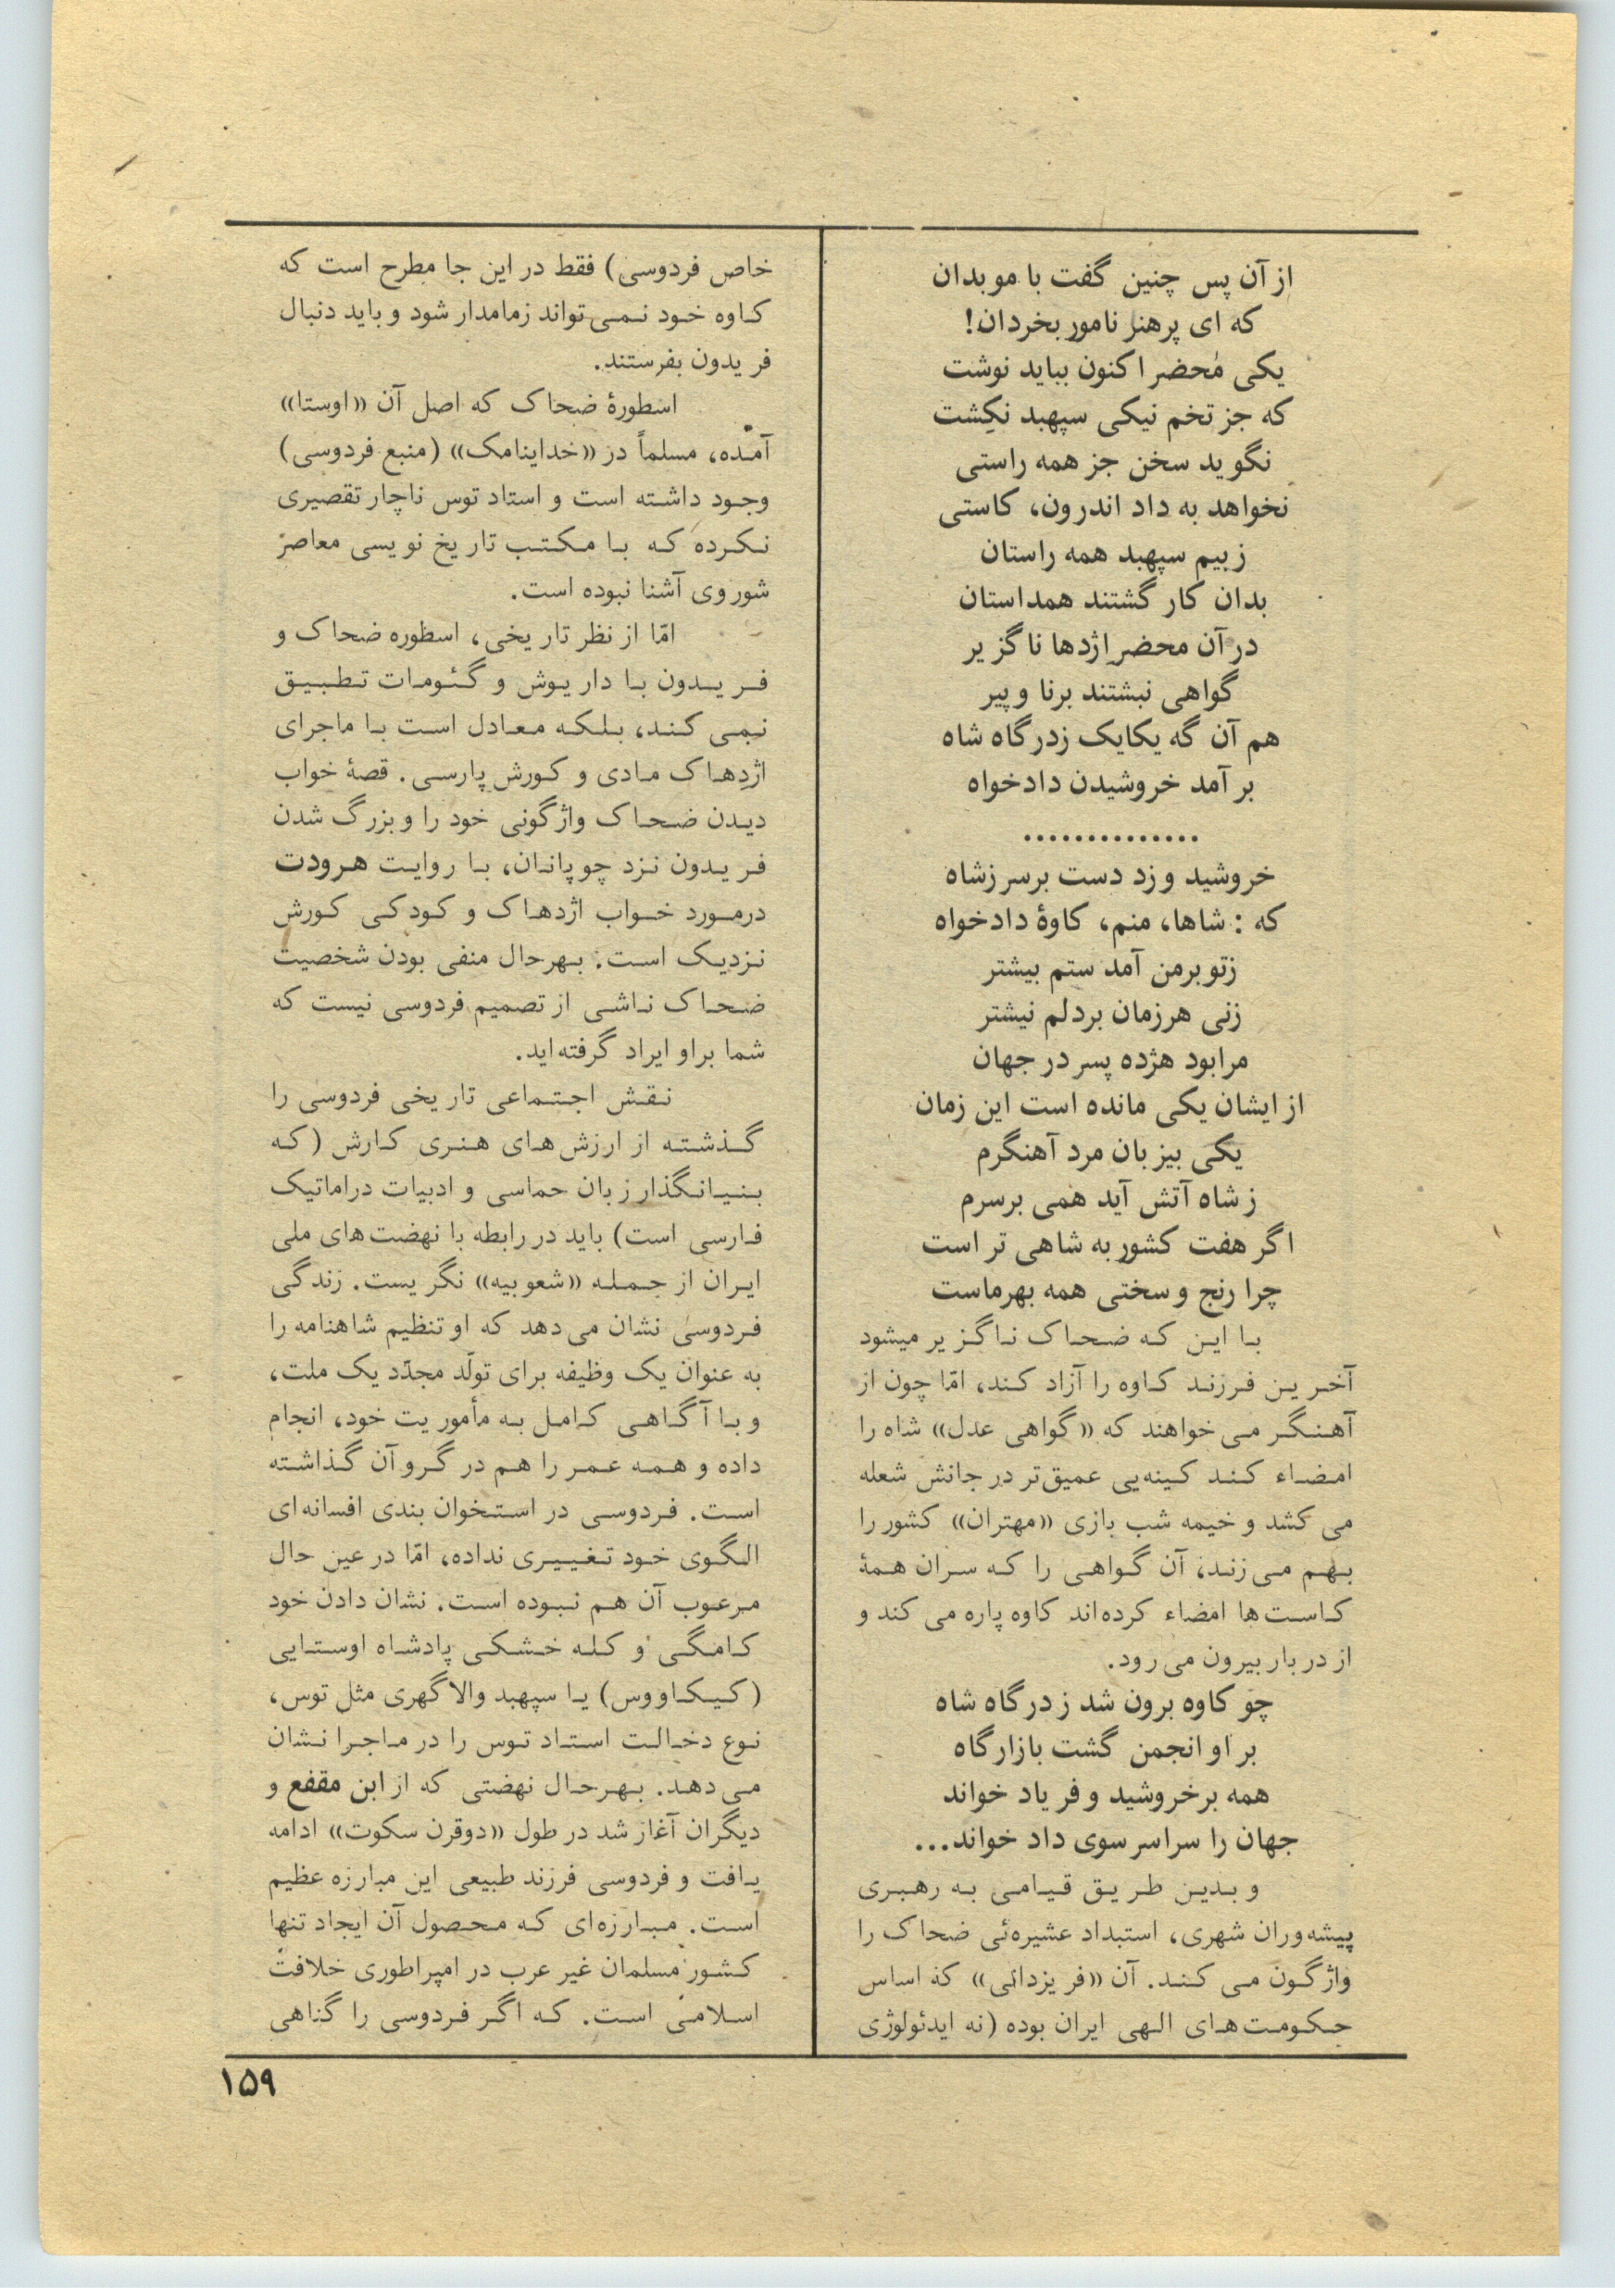 از آن پس چنین گفت با موبدان
که ای پرهنر نامور بخردان!
یکی مَحضر اکنون بباید نوشت
که جز تخم نیکی سپهبد نکِشت
نگوید سخن جز همه راستی
نخواهد به داد اندرون، کاستی
زبیم سپهبد همه راستان
بدان کار گشتند همداستان
در آن محضرِ اژدها ناگزیر
گواهی نبشتند برنا و پیر
هم آن گه یکایک زدرگاه شاه
برآمد خروشیدن دادخواه
..............
خروشید و زد دست برسر زشاه
که : شاها، منم، کاوهٔ دادخواه
زتو برمن آمد ستم بیشتر
زنی هرزمان بردلم نیشتر
مرا بود هژده پسر در جهان
از ایشان یکی مانده است این زمان
یکی بیزبان مرد آهنگرم
زشاه آتش آید همی برسرم
اگر هفت کشور به شاهی تر است
چرا رنج و سختی همه بهرماست
با این که ضحاک ناگزیر میشود
آخرین فرزند کاوه را آزاد کند، امّا چون از
آهنگر می‌خواهند که «گواهی عدل» شاه را
امضاء کند کینه‌یی عمیق‌تر در جانش شعله
می کشد و خیمه شب بازی «مهتران» کشور را
بهم می‌زند، آن گواهی را که سران همهٔ
کاست‌ها امضاء کرده‌اند کاوه پاره می کند و
از دربار بیرون می رود.
چو کاوه برون شد زدرگاه شاه
بر او انجمن گشت بازارگاه
همه برخروشید و فریاد خواند
جهان را سراسر سوی داد خواند...
و بدین طریق قیامی به رهبری
پیشه‌وران شهری، استبداد عشیره‌ئی ضحاک را
واژگون می کند. آن «فر یزدانی» که اساس
حکومت‌های الهی ایران بوده (نه ایدئولوژی
خاص فردوسی) فقط در این جا مطرح است که
کاوه خود نمی‌تواند زمامدار شود و باید دنبال
فریدون بفرستند.
اسطورهٔ ضحاک که اصل آن «اوستا»
آمده، مسلماً در «خداینامک» (منبع فردوسی)
وجود داشته است و استاد توس ناچار تقصیری
نکرده که با مکتب تاریخ نویسی معاصر
شوروی آشنا نبوده است.
امّا از نظر تاریخی، اسطوره ضحاک و
فریدون با داریوش و گئومات تطبیق
نمی کند، بلکه معادل است با ماجرای
اژدهاک مادی و کورش پارسی. قصهٔ خواب
دیدن ضحاک واژگونی خود را و بزرگ شدن
فریدون نزد چوپانان، با روایت هرودت
درمورد خواب اژدهاک و کودکی کورش
نزدیک است. بهرحال منفی بودن شخصیت
ضحاک ناشی از تصمیم فردوسی نیست که
شما براو ایراد گرفته‌اید.
نقش اجتماعی تاریخی فردوسی را
گذشته از ارزش‌های هنری کارش (که
بنیانگذار زبان حماسی و ادبیات دراماتیک
فارسی است) باید در رابطه با نهضت‌های ملی
ایران از جمله «شعوبیه» نگریست. زندگی
فردوسی نشان می‌دهد که او تنظیم شاهنامه را
به عنوان یک وظیفه برای تولّد مجدّد یک ملت،
و با آگاهی کامل به مأموریت خود، انجام
داده و همه عمر را هم در گرو آن گذاشته
است. فردوسی در استخوان بندی افسانه‌ای
الگوی خود تغییری نداده، امّا در عین حال
مرعوب آن هم نبوده است. نشان دادن خود
کامگی و کله خشکی پادشاه اوستایی
(کیکاووس) یا سپهبد والاگهری مثل توس،
نوع دخالت استاد توس را در ماجرا نشان
می‌دهد. بهرحال نهضتی که از ابن مقفع و
دیگران آغاز شد در طول «دوقرن سکوت» ادامه
یافت و فردوسی فرزند طبیعی این مبارزه عظیم
است. مبارزه‌ای که محصول آن ایجاد تنها
کشور مسلمان غیر عرب در امپراطوری خلافت
اسلامی است. که اگر فردوسی را گناهی
۱۵۹